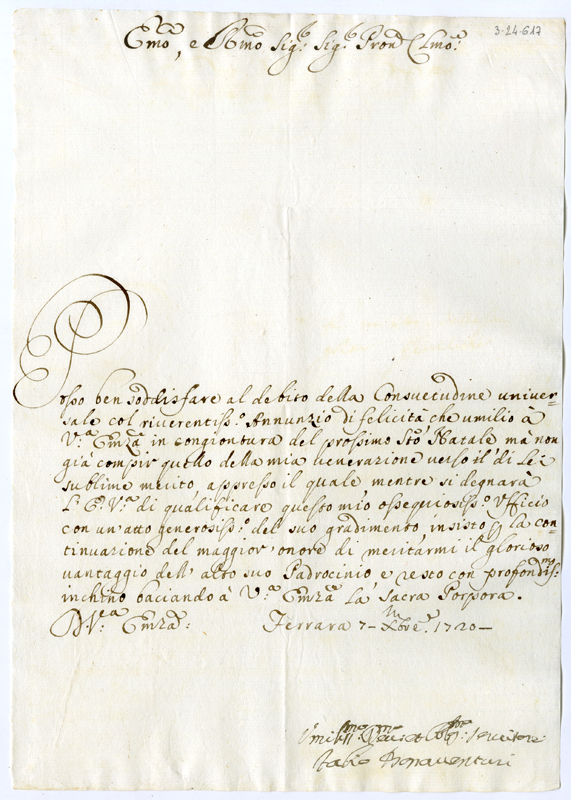 3-24-617
Emo, e Rmo Sig.r Sig.r Pron Colmo:
Posso ben soddisfare al debito della Consuetudine univer-
sale col riverentiss.o Annunzio di felicità che umilio à
V.a Emza in congiontura del prossimo Sto Natale mà non
già compir quello della mia venerazione verso il di Lei
sublime merito, appresso il quale mentre si degnarà
L'E. V.a di qualificare questo mio ossequiosiss.o Ufficio
con un'atto generosiss.o del suo gradimento, insisto la con-
tinuazione del maggior' onore di meritarmi il glorioso
vantaggio dell' alto suo Padrocinio, e resto con profondiss.mo
inchino baciando à V.a Emza La Sacra Porpora.
D V.ra Emza: Ferrara 7 Xbre. 1720-
Umiliss.mo Seruitore
Fabio Bonaventuri